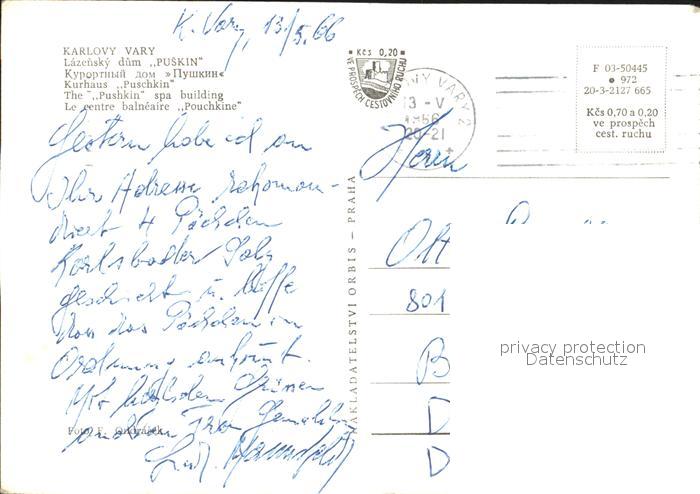 K. Vary, 13/5.66
KARLOVY VARY
Lázeňský dům „PUŠKIN"
Курортный дом »Пушкин«
Kurhaus „Puschkin"
The „Pushkin" spa building
Le centre balnéaire „Pouchkine"
Kčs 0,20
VE PROSPĚCH CESTOVNÍHO RUCHU
VARY 2
13 -V
20-21
F 03-50445
● 972
20-3-2127 665
Kčs 0,70 a 0,20
ve prospěch
cest. ruchu
Gestern habe ich an
Ihre Adresse rekoman-
diert 4 Päckchen
Karlsbader Salz
geschickt u. hoffe
das das Päckchen in
Ordnung ankommt.
Mit herzlichen Grüssen
Frau Gemahlin
Foto F.
NAKLADATELSTVÍ ORBIS – PRAHA
Herrn
Ott
801
B
D
D
privacy protection
Datenschutz